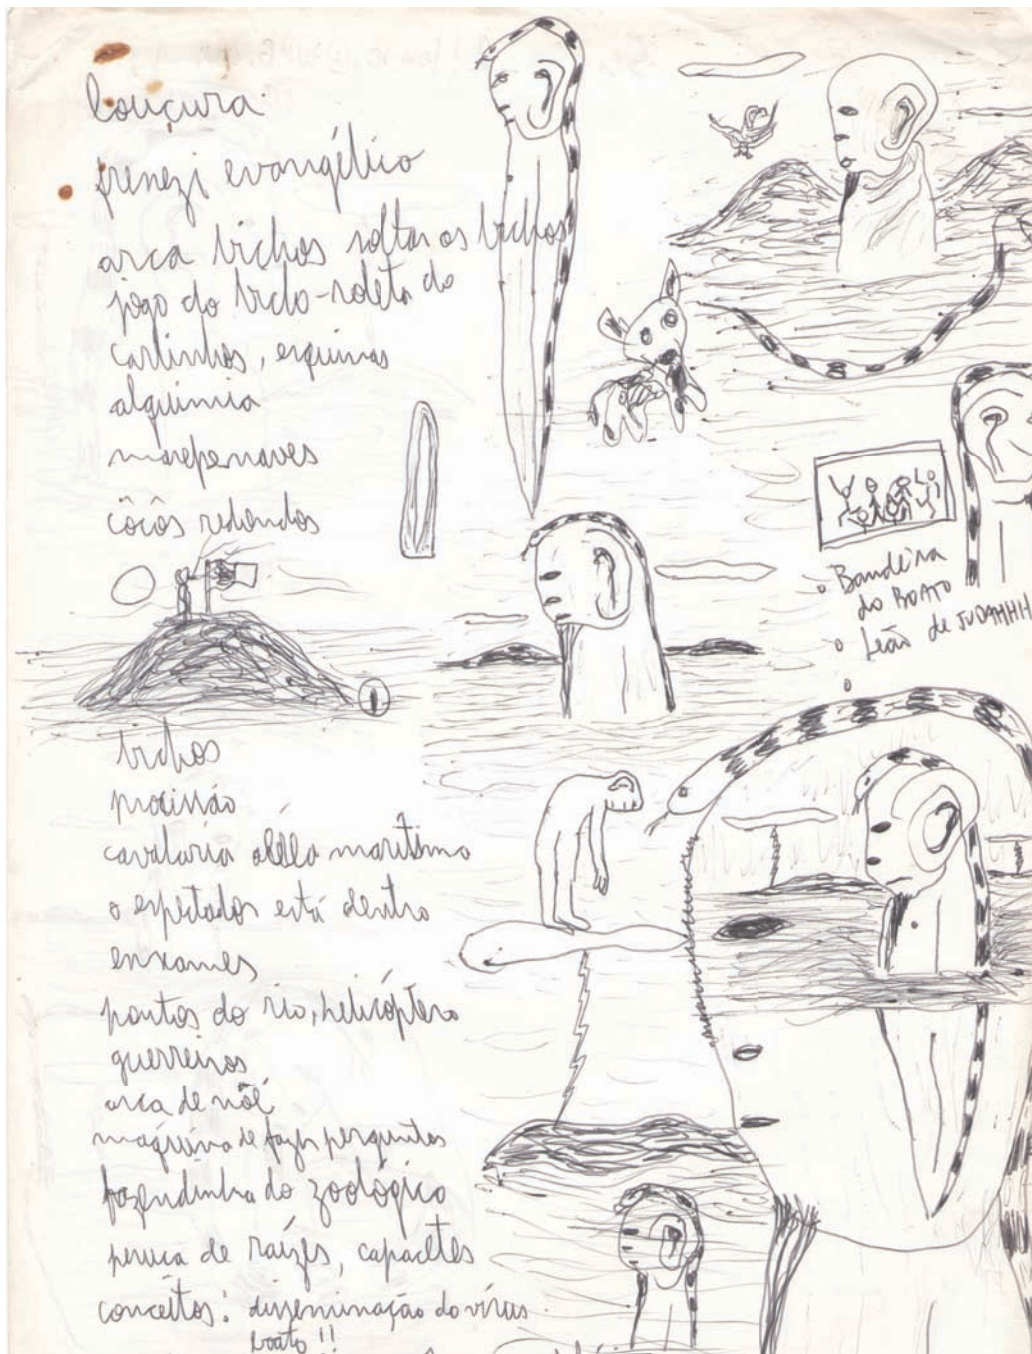 louçura
frenezi evangélico
arca bichos soltar os bichos
jogo do bicho-roleta do
carlinhos, esquinas
alquimia
marepenaves
côcos redondos
bichos
procissão
cavalaria marítimo
o espectador está dentro
enxames
pontos do rio, helicóptero
guerreiros
arca de nôé
maquina de fazer perguntas
fazendinha do zoológico
peruca de raízes, capacetes
conceitos: disseminação do vírus
boato!!
Bandeira
do BOATO
Leão de JUDAHHH